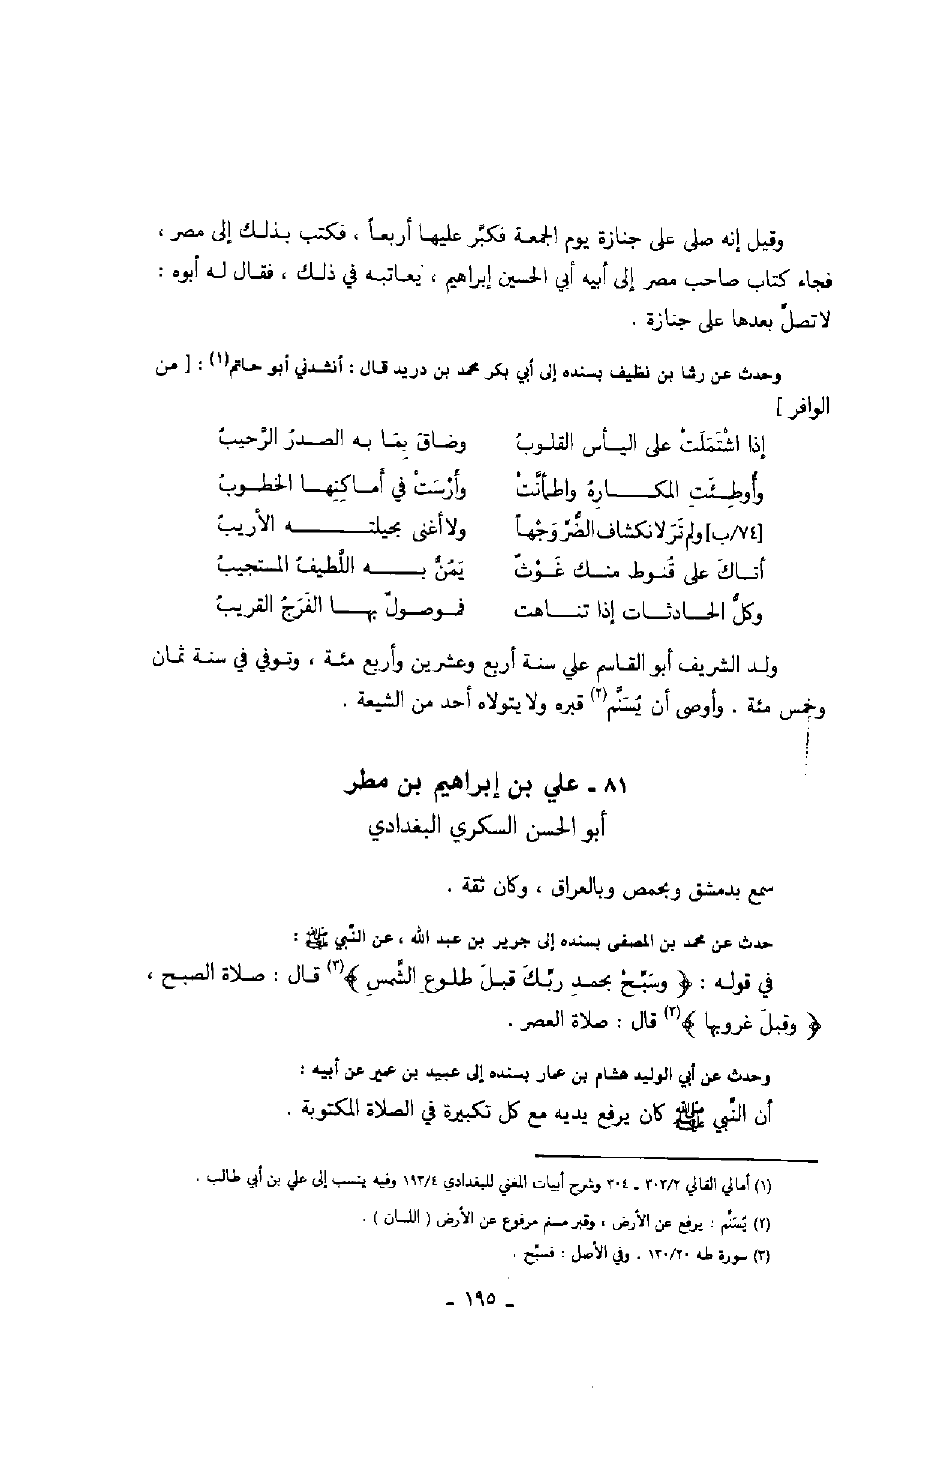 وقيل إنه صلى على جنازة يوم الجمعة فكبَّر عليها أربعاً ، فكتب بذلك إلى مصر ،
فجاء كتاب صاحب مصر إلى أبيه أبي الحسين إبراهيم ، يُعاتبه في ذلك ، فقال له أبوه :
لا تصلِّ بعدها على جنازة .
وحدث عن رشا بن نظيف بسنده إلى أبي بكر محمد بن دريد قال : أنشدني أبو حاتم(١) : [ من
الوافر ]
إذا اشْتَمَلَتْ على اليأس القلوبُ وضاقَ بِمَا به الصدرُ الرَّحيبُ
وأُوطِئَتِ المكارهُ واطمأنَّتْ وأَرْسَتْ في أماكنِها الخطوبُ
[٧٤/ب] ولم تَرَ لانكشاف الضُّرِّ وَجْهاً ولا أغنى بحيلته الأريبُ
أتاكَ على قُنوط منك غَوْثٌ يَمُنُّ به اللَّطيفُ المستجيبُ
وكلُّ الحادثات إذا تناهت فموصولٌ بها الفَرَجُ القريبُ
ولد الشريف أبو القاسم علي سنة أربع وعشرين وأربع مئة ، وتوفي في سنة ثمان
وخمس مئة . وأوصى أن يُسَنَّم(٢) قبره ولا يتولاه أحد من الشيعة .
٨١ - علي بن إبراهيم بن مطر
أبو الحسن السكري البغدادي
سمع بدمشق وبحمص وبالعراق ، وكان ثقة .
حدث عن محمد بن المصفى بسنده إلى جرير بن عبد الله ، عن النَّبي ﷺ :
في قوله : ﴿ وسَبِّحْ بحمدِ ربِّكَ قبلَ طلوعِ الشَّمسِ ﴾(٣) قال : صلاة الصبح ،
﴿ وقبلَ غروبها ﴾(٣) قال : صلاة العصر .
وحدث عن أبي الوليد هشام بن عمار بسنده إلى عبيد بن عمير عن أبيه :
أن النَّبي ﷺ كان يرفع يديه مع كل تكبيرة في الصلاة المكتوبة .
(١) أمالي القالي ٣٠٣/٢ ـ ٣٠٤ وشرح أبيات المغني للبغدادي ١٩٣/٤ وفيه ينسب إلى علي بن أبي طالب .
(٢) يُسَنَّم : يرفع عن الأرض ، وقبر مسنم مرفوع عن الأرض ( اللسان ) .
(٣) سورة طه ١٣٠/٢٠ . وفي الأصل : فسبِّح .
ـ ١٩٥ ـ